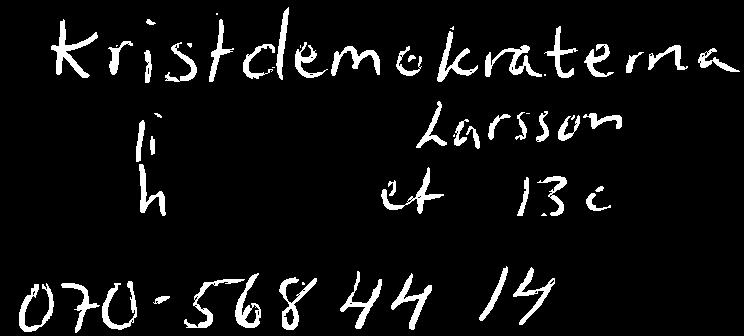 Kristdemokraterna
li Larsson
h et 13 c
070-568 44 14